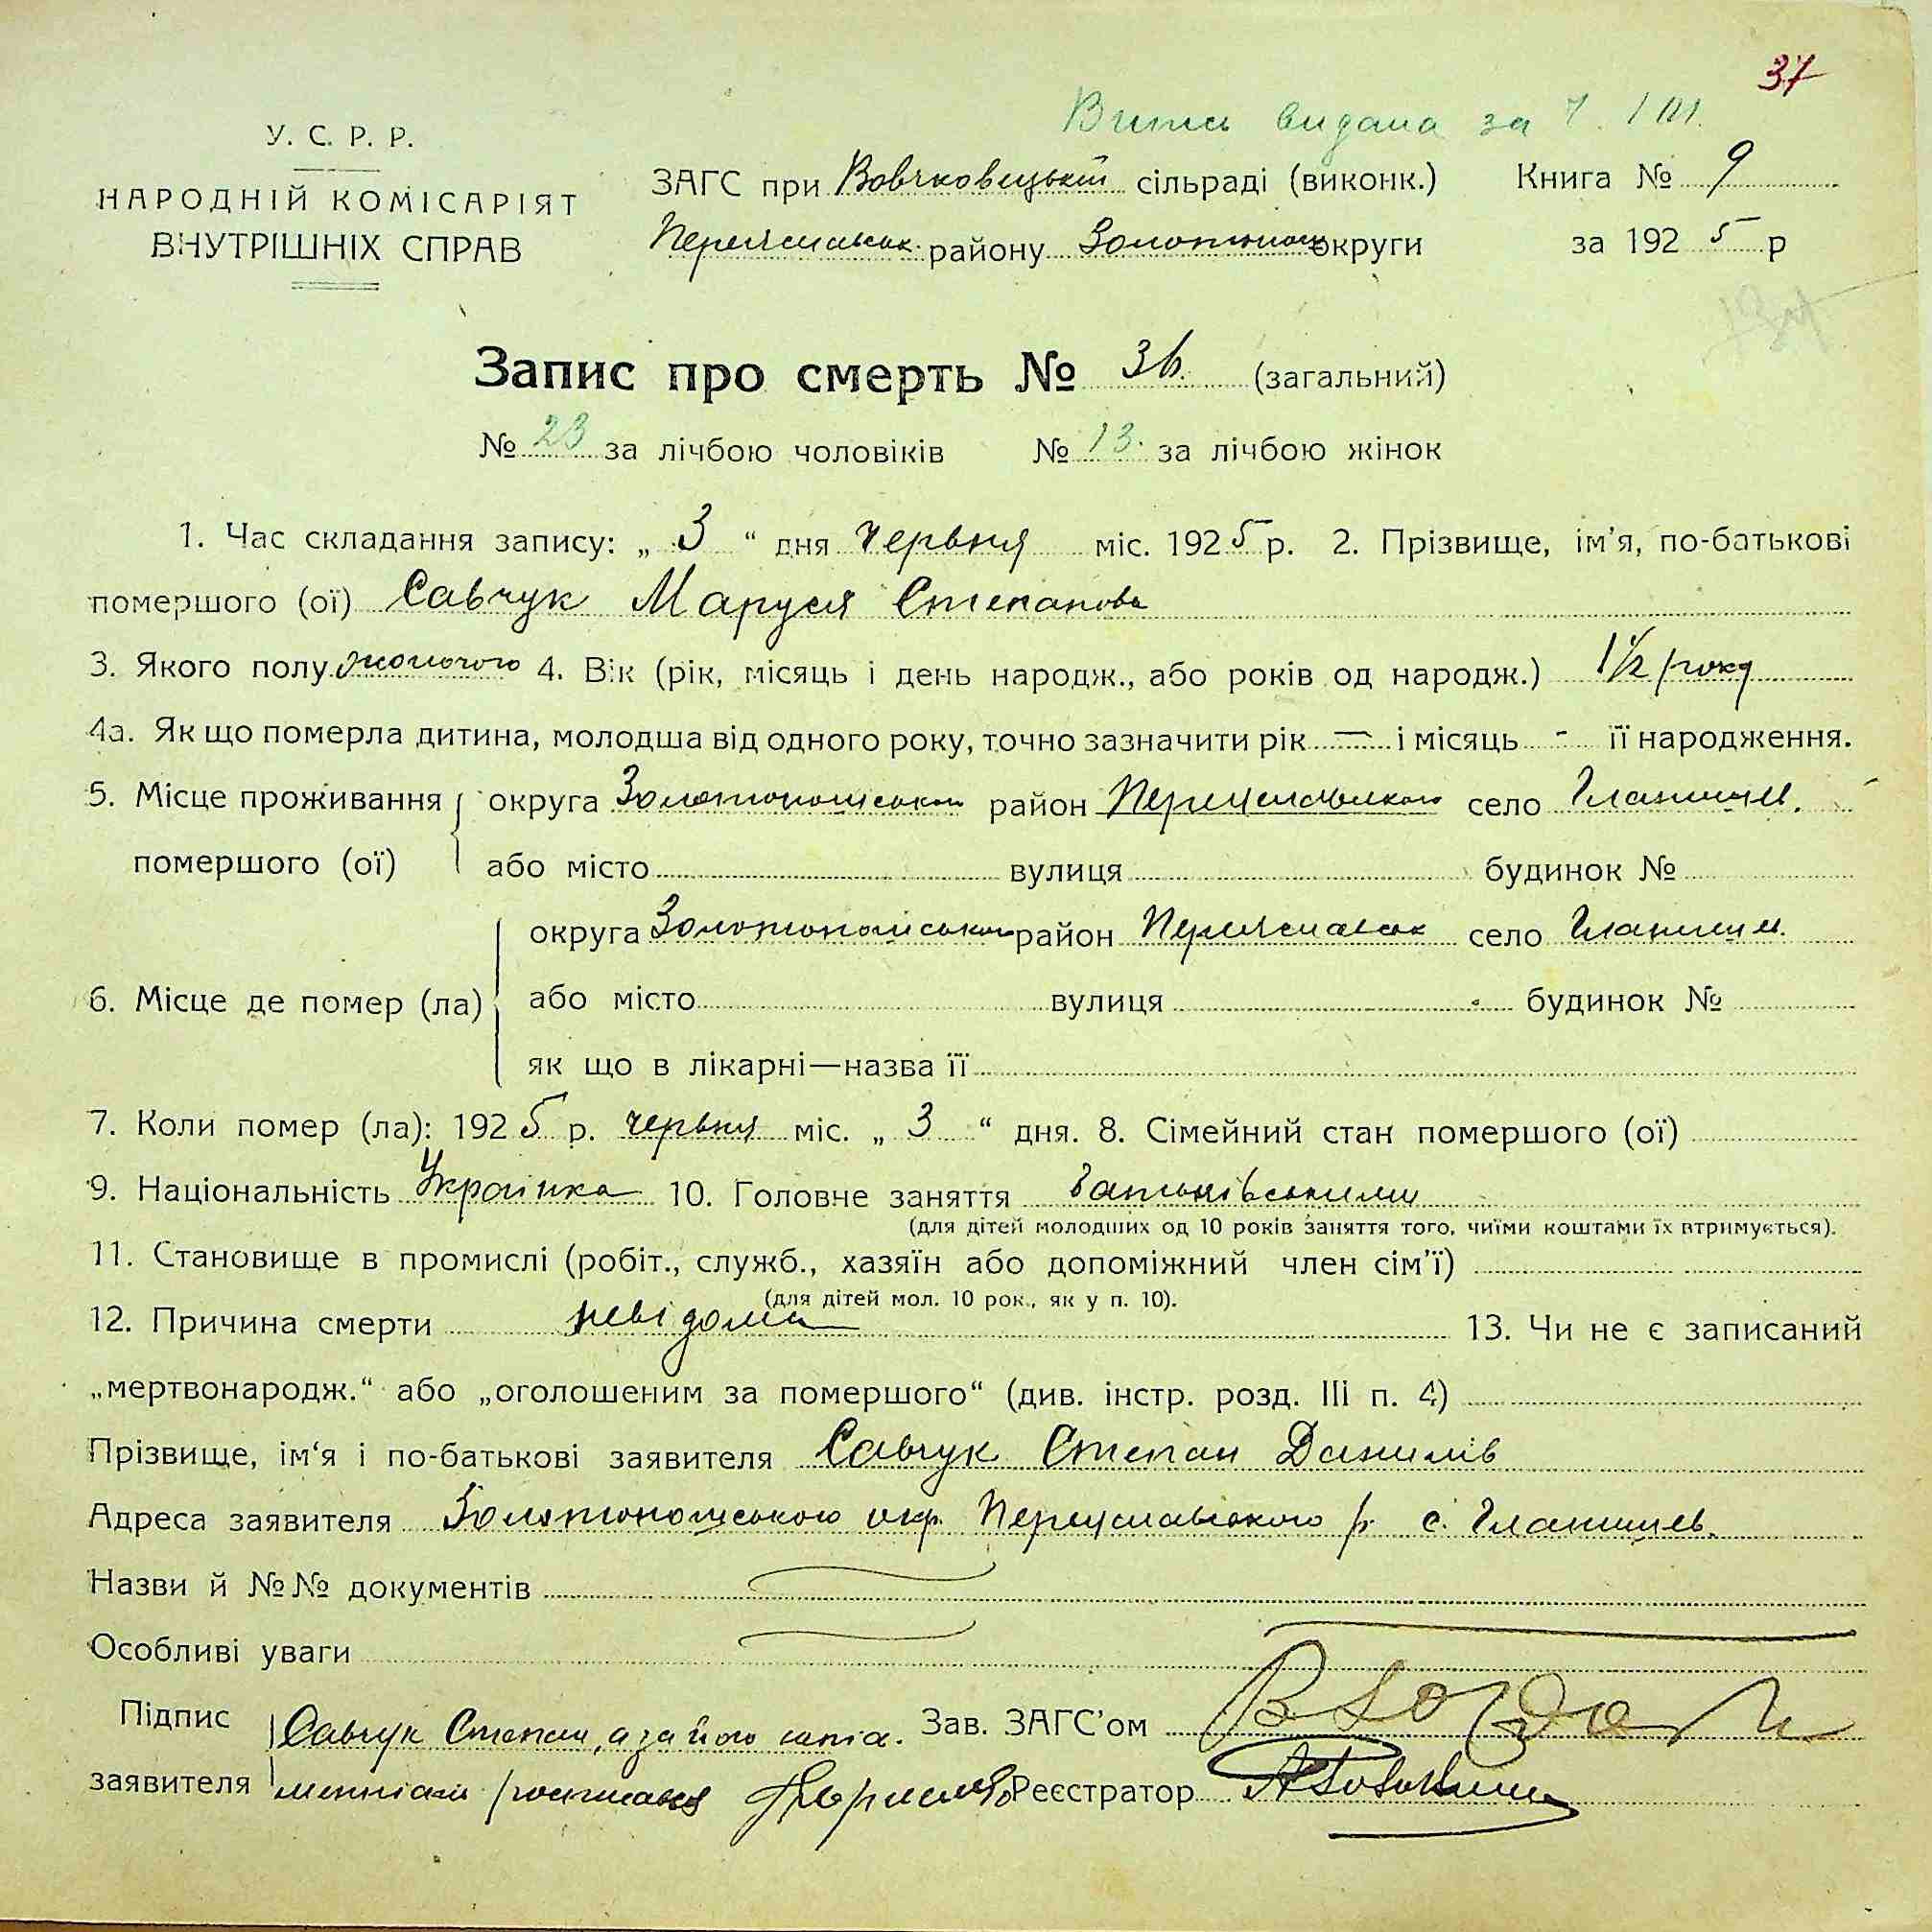 37
видана за 7.
У. С. Р. Р.
НАРОДНІЙ КОМІСАРІЯТ
ВНУТРІШНІХ СПРАВ
ЗАГС при Вовчковецькій сільраді (виконк.) Книга № 9
Переяславськ. району Золотонош округи за 1925 р
Запис про смерть № 36. (загальний)
№ 23 за лічбою чоловіків № 13. за лічбою жінок
1. Час складання запису: „ 3 “ дня червня міс. 1925 р. 2. Прізвище, ім'я, по-батькові
помершого (ої) Савчук Маруся Степанова
3. Якого полу жоночого 4. Вік (рік, місяць і день народж., або років од народж.) 1 1/2 року
4а. Як що померла дитина, молодша від одного року, точно зазначити рік — і місяць - її народження.
5. Місце проживання округа Золотоношської район Переяславського село Гланишев.
помершого (ої) або місто вулиця будинок №
округа Золотоношської район Переяславськ село Гланишев.
6. Місце де помер (ла) або місто вулиця будинок №
як що в лікарні—назва її
7. Коли помер (ла): 1925 р. червня міс. „ 3 “ дня. 8. Сімейний стан помершого (ої)
9. Національність Українка 10. Головне заняття батьківськими
(для дітей молодших од 10 років заняття того, чиїми коштами їх втримується).
11. Становище в промислі (робіт., служб., хазяїн або допоміжний член сім'ї)
(для дітей мол. 10 рок., як у п. 10).
12. Причина смерти невідома 13. Чи не є записаний
„мертвонародж.“ або „оголошеним за помершого“ (див. інстр. розд. III п. 4)
Прізвище, ім'я і по-батькові заявителя Савчук Степан Данилів
Адреса заявителя Золотоношського окр. Переяславського р. с. Гланишев.
Назви й №№ документів
Особливі уваги
Підпис Савчук Степан, а за його Зав. ЗАГС'ом
заявителя росписався Реєстратор